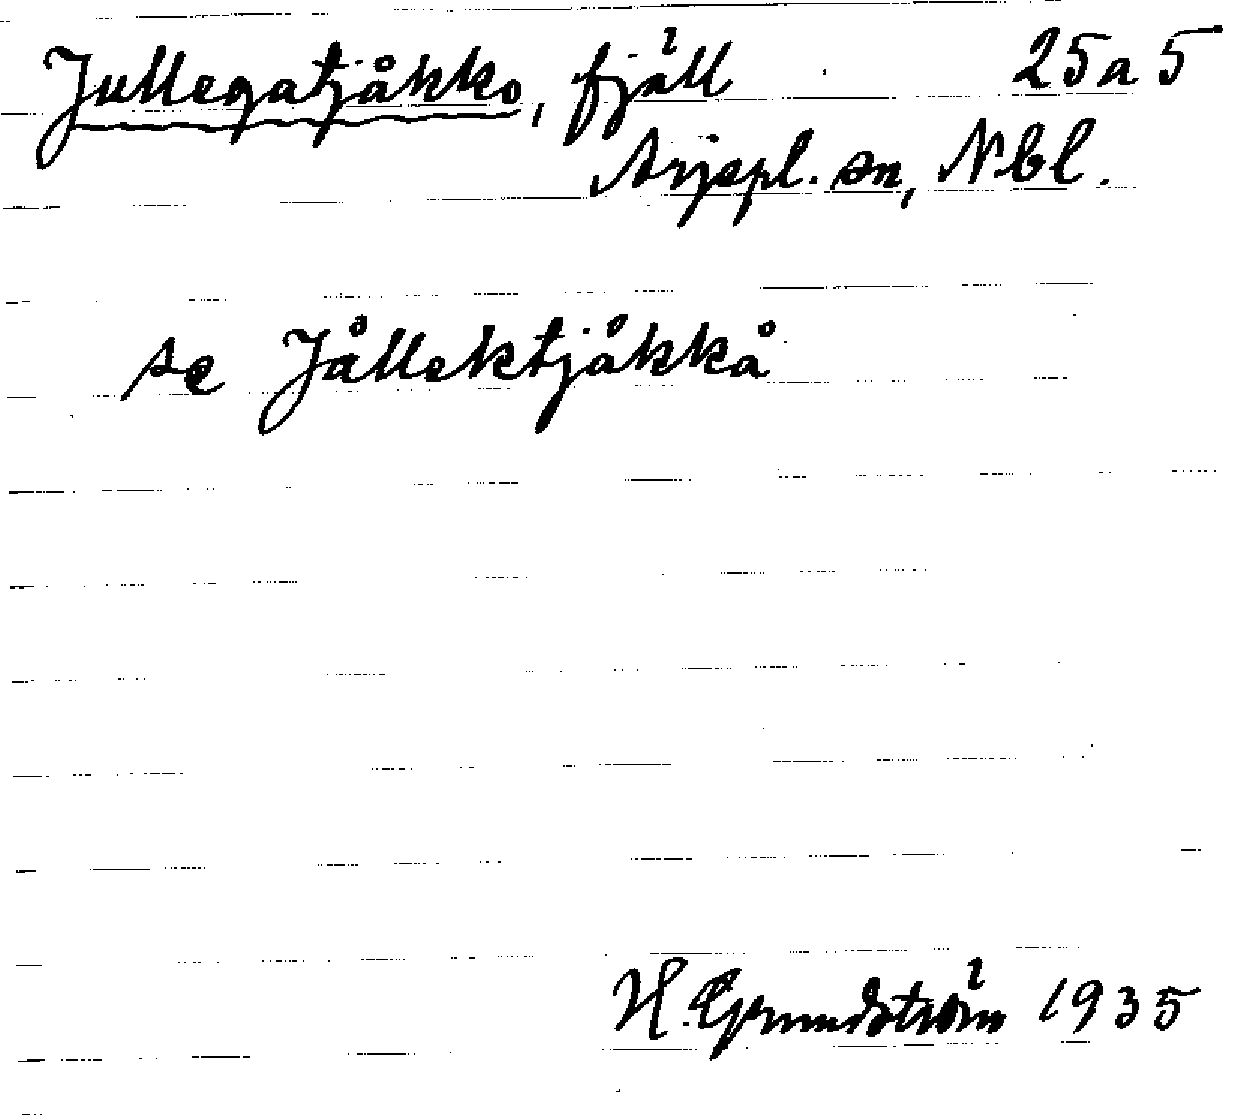 Jullegatjåkko, fjäll 25a5
Arjepl. sn, Nbl.
se Jållektjåkkå
H. Grundström 1935